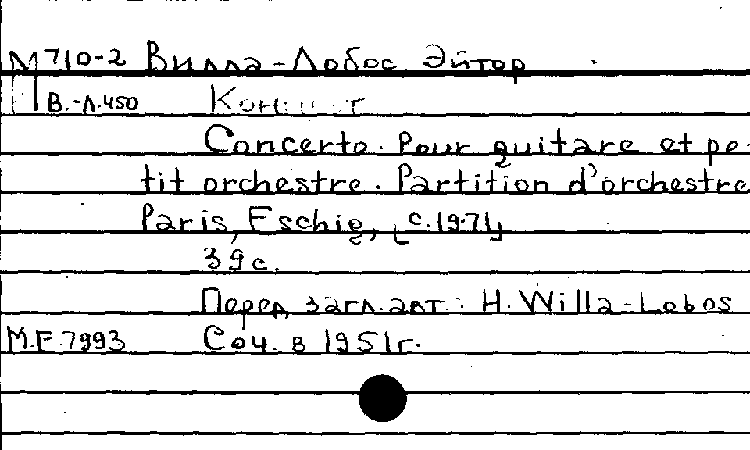 М710-2 Вилла-Лобос Эйтор
В.-Л.450
Concerto. Pour guitare et pe-
tit orchestre. Partition d'orchestre
Paris, Eschig, [c.1971]
39с.
Перед загл. авт.: H. Willa-Lobos
M.E.7993 Соч. в 1951г.